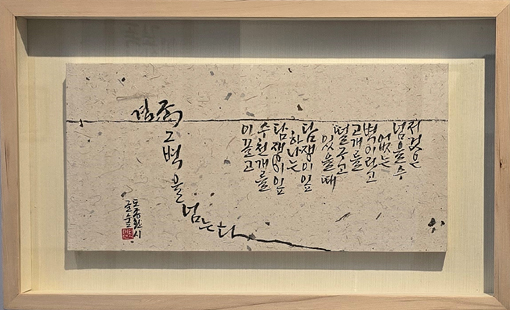 저것은
넘을 수
없는
벽이라고
고개를
떨구고
있을 때
담쟁이 잎
하나는
담쟁이 잎
수천 개를
이끌고
결국 그 벽을 넘는다
도종환 시